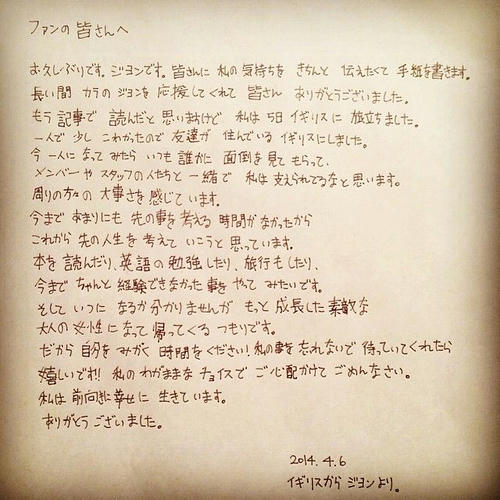 ファンの 皆さんへ
お久しぶりです。ジヨンです。皆さんに 私の 気持ちを きちんと 伝えたくて 手紙を書きます。
長い間 カラの ジヨンを 応援してくれて 皆さん ありがとうございました。
もう 記事で 読んだと 思いますけど 私は 5日 イギリスに 旅立ちました。
一人で 少し こわかったので 友達が 住んでいる イギリスにしました。
今 一人に なって みたら いつも 誰かに 面倒を 見て もらって、
メンバーや スタッフの 人たちと 一緒で 私は 支えられてるなと 思います。
周りの 方々の 大事さを 感じて います。
今まで あまりにも 先の 事を 考える 時間が なかったから
これから 先の 人生を 考えて いこうと 思っています。
本を 読んだり、英語の 勉強したり、旅行もしたり、
今まで ちゃんと 経験できなかった 事を やって みたいです。
そして いつに なるか 分かりませんが もっと 成長した 素敵な
大人の 女性に なって 帰ってくる つもりです。
だから 自分を みがく 時間をください! 私の事を 忘れないで 待っていてくれたら
嬉しいです!! 私の わがままな チョイスで ご心配かけて ごめんなさい。
私は 前向きに 幸せに 生きています。
ありがとう ございました。
2014. 4. 6
イギリスから ジヨンより。